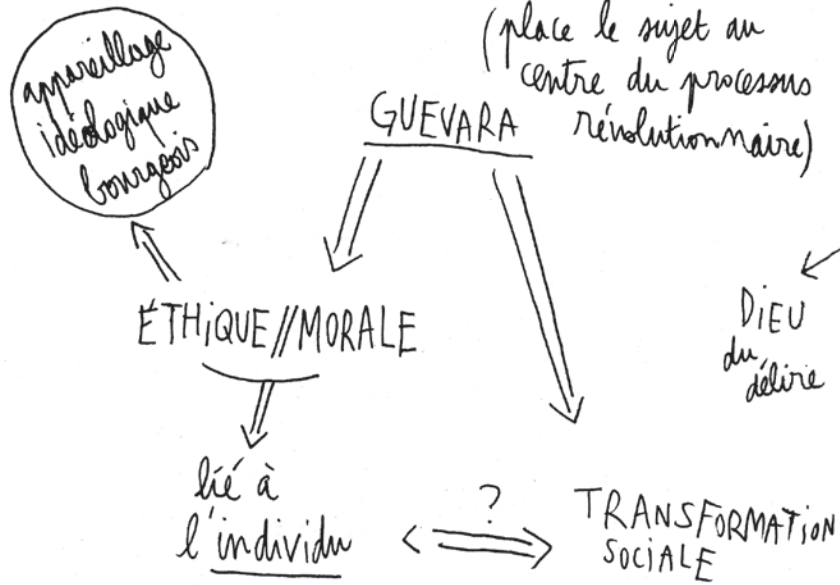 appareillage
idéologique
bourgeois
GUEVARA
(place le sujet au
centre du processus
révolutionnaire)
ÉTHiQUE//MORALE
DiEU
du
délire
lié à
l'individu
?
TRANSFORMATiON
SOCiALE